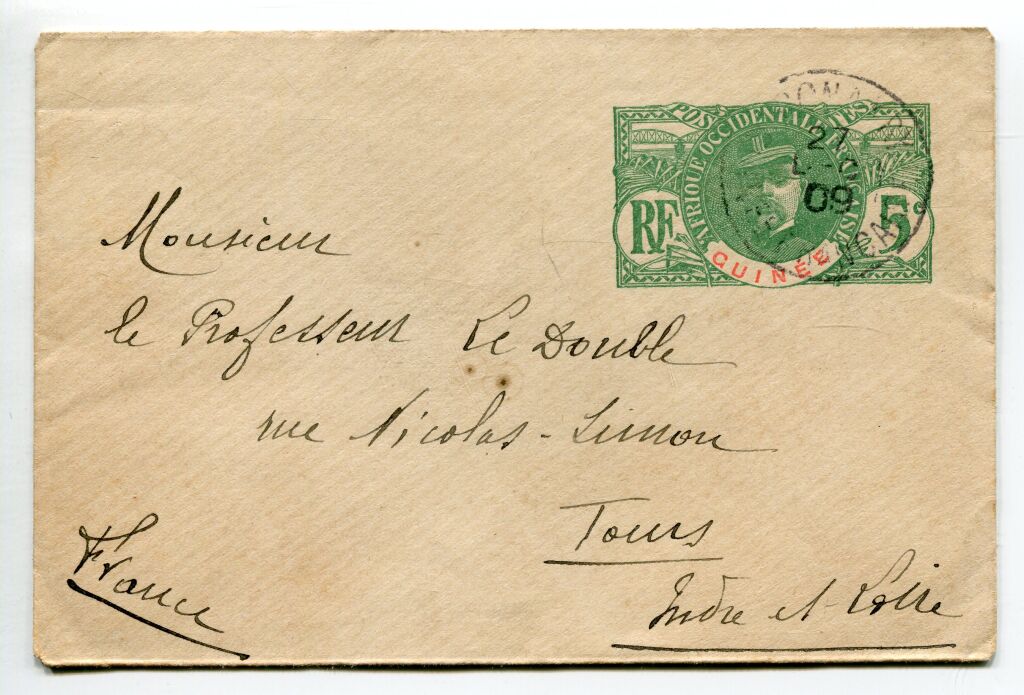 POSTES
AFRIQUE OCCIDENTALE FRANÇAISE
RF
5c
GUINÉE
CONAKRY
27
09
Monsieur
le Professeur Le Double
rue Nicolas-Simon
Tours
Indre et-Loire
France